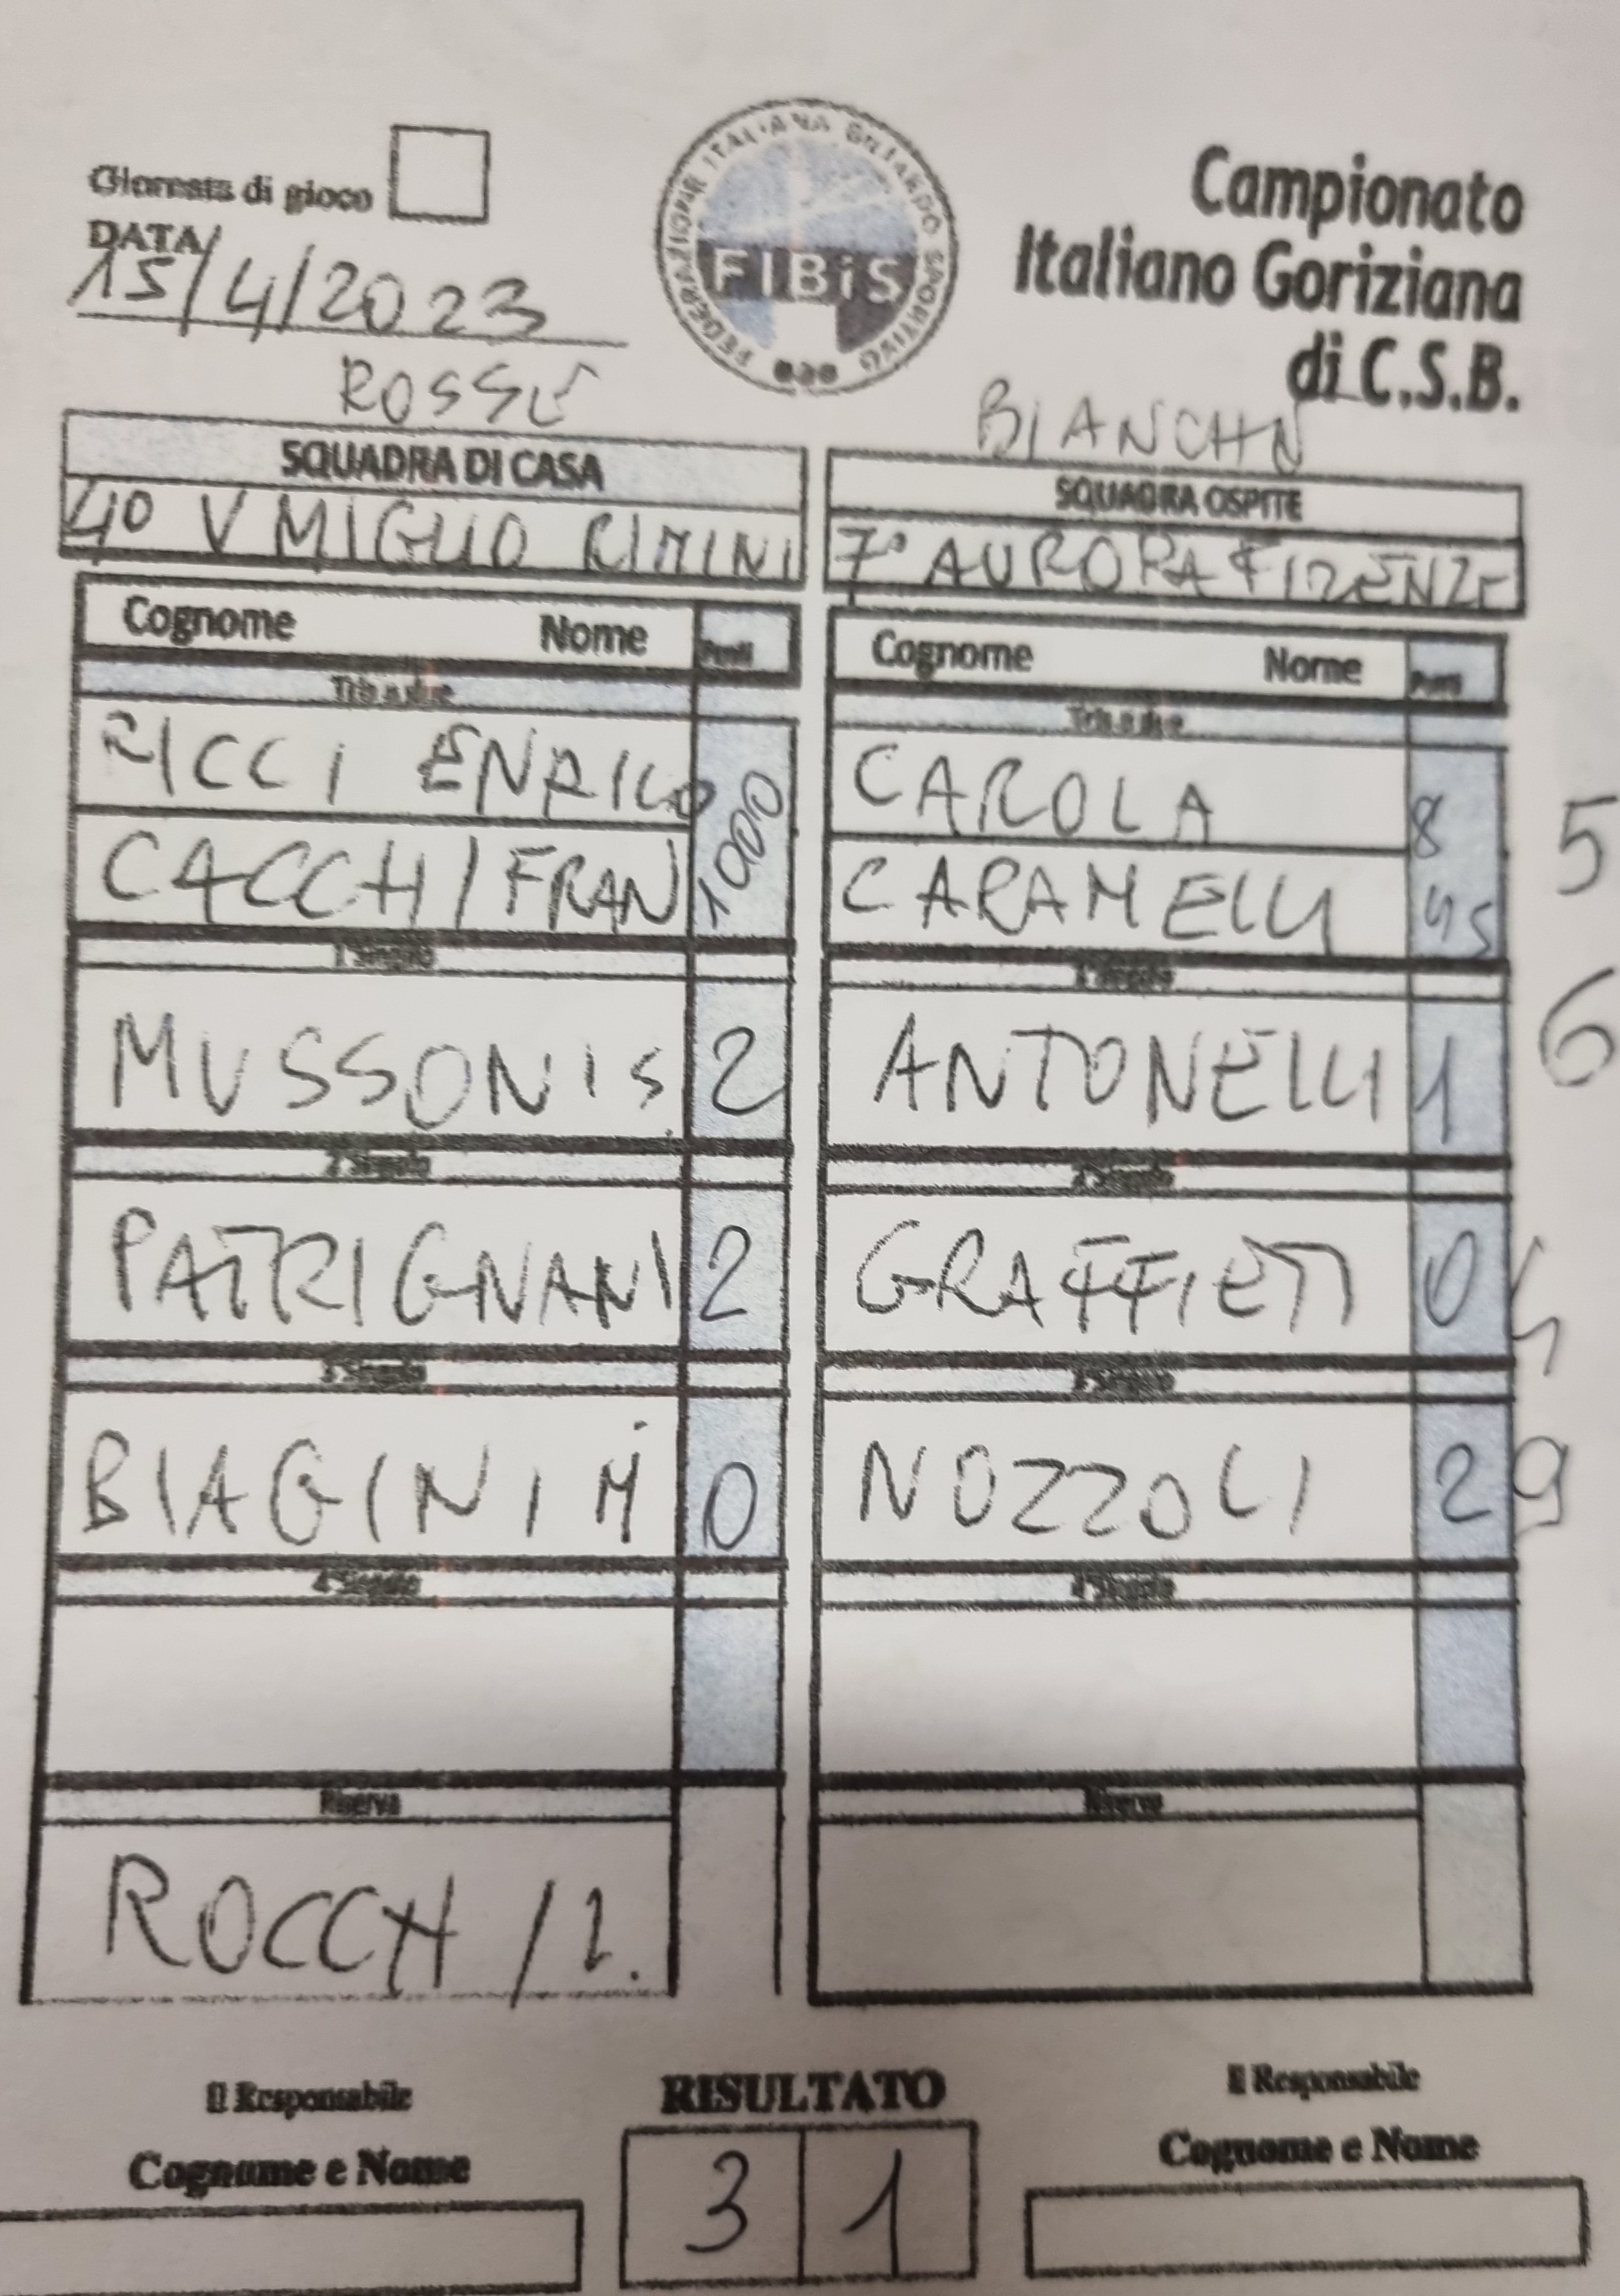 Giornata di gioco
DATA
15/4/2023
FEDERAZIONE ITALIANA BILIARDO SPORTIVO
FIBiS
Campionato
Italiano Goriziana
di C.S.B.
ROSSE
BIANCHN
SQUADRA DI CASA
4° V MIGLIO RIMINI
SQUADRA OSPITE
7° AURORA FIRENZE
Cognome Nome Punti
Cognome Nome Punti
RICCI ENRICO 1000
CACCHI FRAN
CAROLA 845 5
CARAMELLI
1° Singolo
1° Singolo
MUSSONI S. 2
ANTONELLI 1 6
2° Singolo
2° Singolo
PATRIGNANI 2
GRAFFIETI 0
3° Singolo
3° Singolo
BIAGINI M 0
NOZZOLI 2 9
4° Singolo
4° Singolo
Riserva
Riserva
ROCCHI
Il Responsabile
Cognome e Nome
RISULTATO
3 1
Il Responsabile
Cognome e Nome